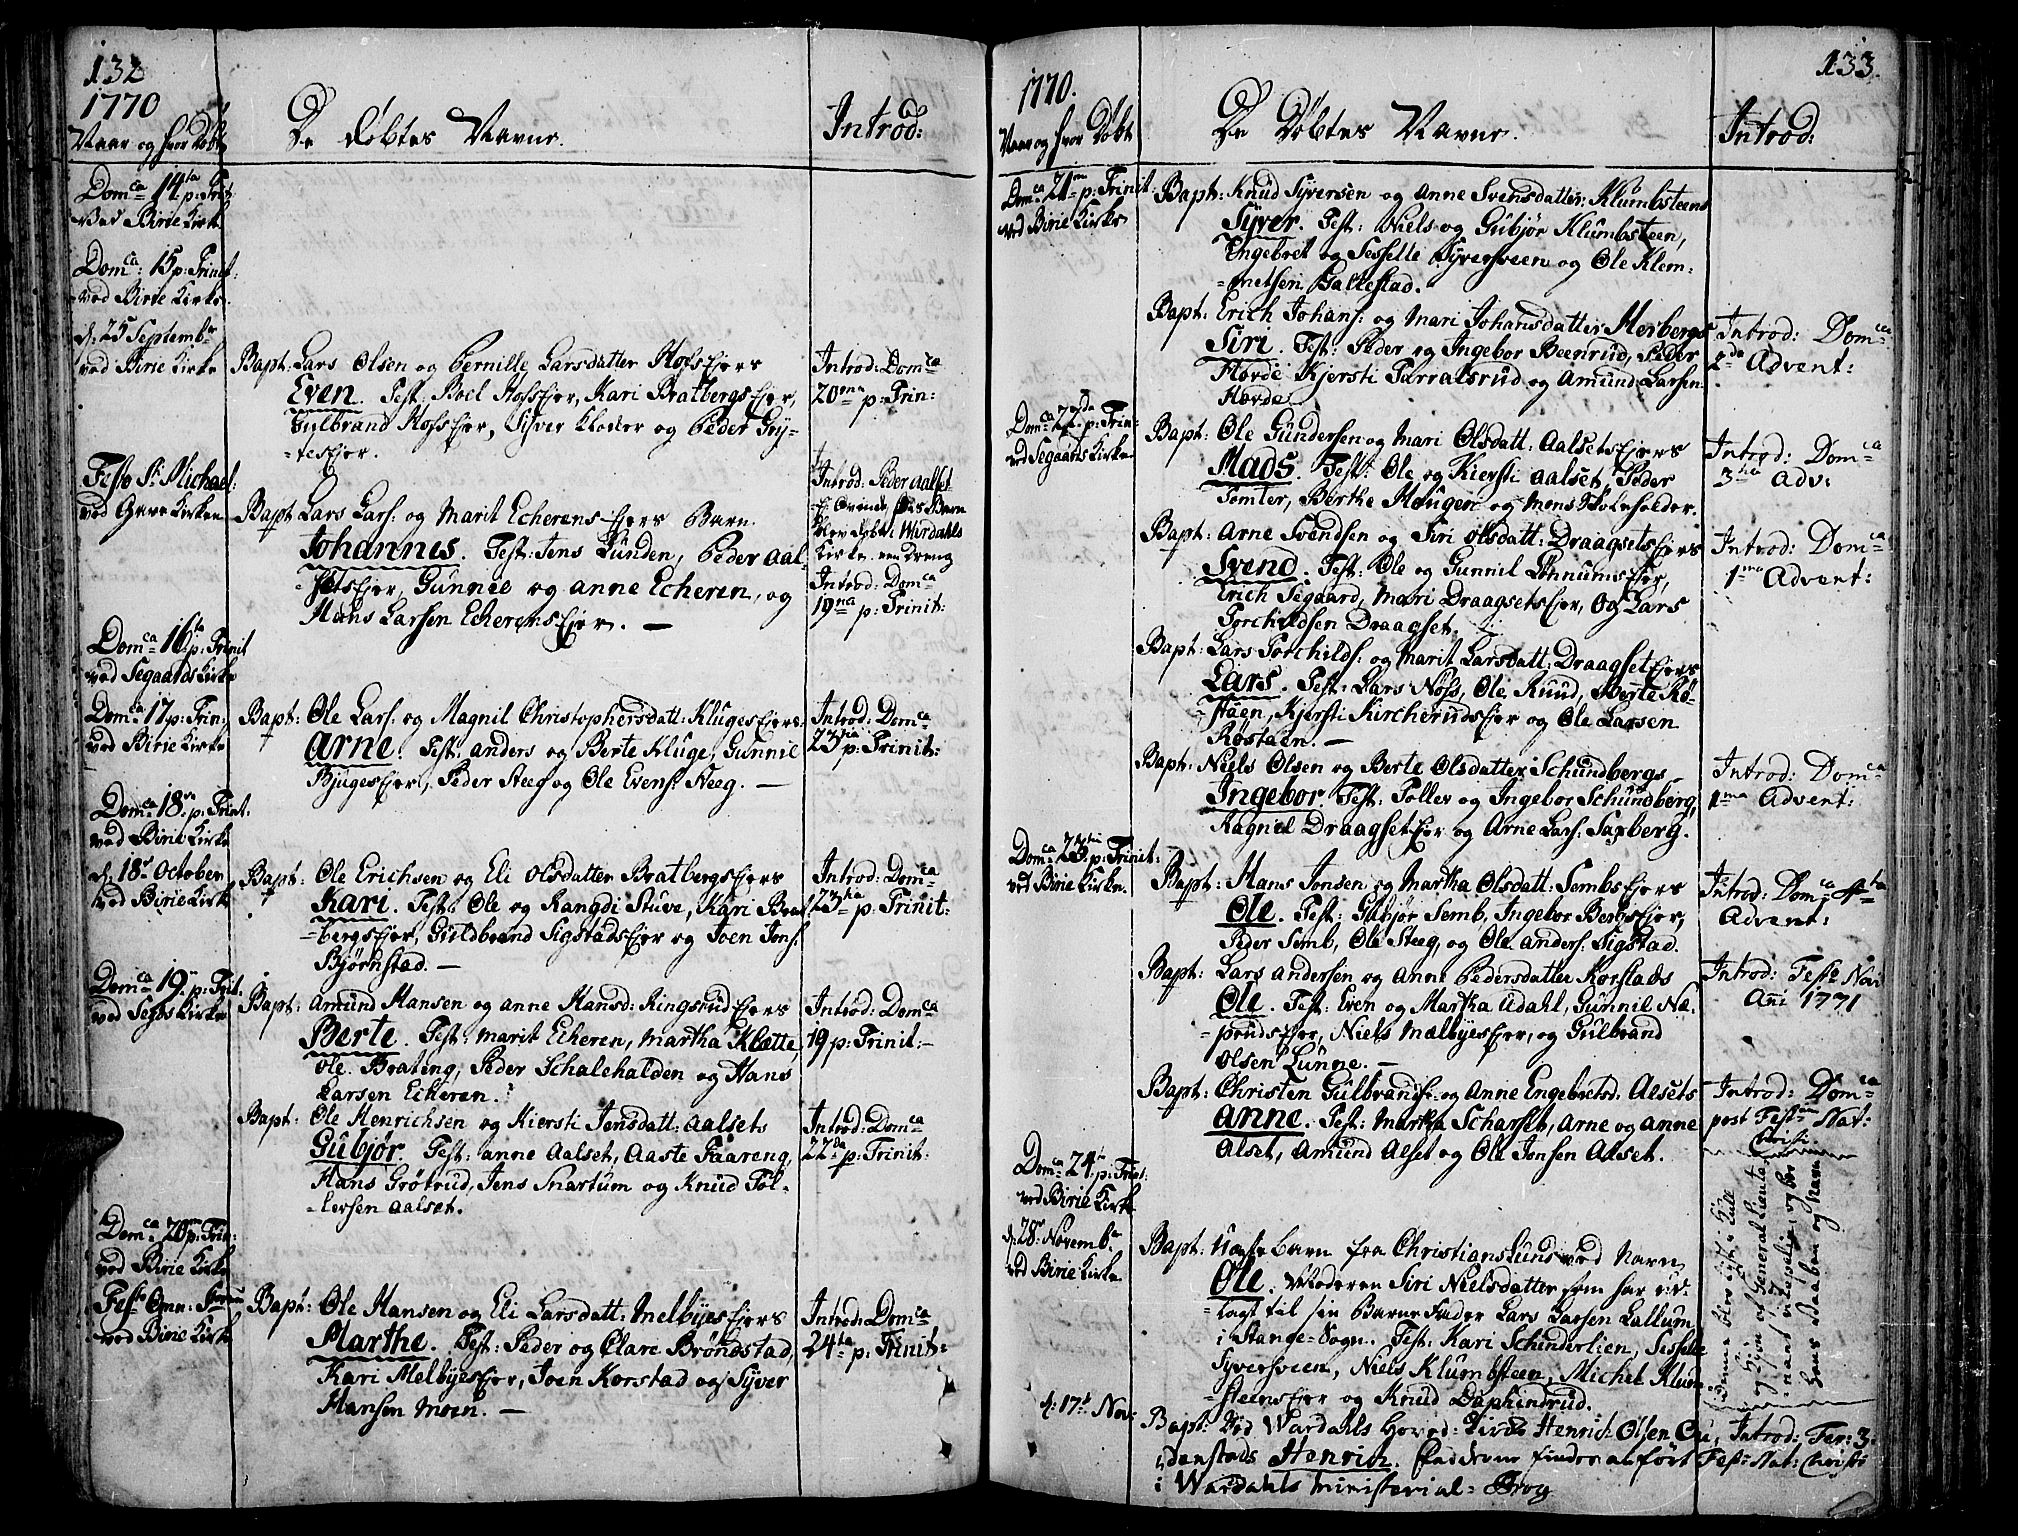 132
1770
Naar og hvor Døbt
De døbtes Navne.
Introd:
Domca 14ta p: Trinit
ved Birie Kirke
Domca: 15 p: Trinit:
ved Birie Kirke.
d. 25 Septembr
ved Birie Kirke
Bapt: Lars Olsen og Pernille Larsdatter Hofs Ejers
Even. Test: Boel Hofs Ejer, Kari Bratbergs Ejer,
Gulbrand Hofs Ejer, Sifver Kloder og Peder Gry-
-tes Ejer.
Introd: Domca
20ma p: Trin:
Festo St Michael:
ved Gave Kirken
Bapt Lars Lars: og Marit Echerens Ejers Barn.
Johannes. Test: Jens Lunden, Peder Aal-
-sets Ejer, Gunnil og Anne Echeren, og
Hans Larsen Echerens Ejer. —
Introd: Peder Aalset
Ej: Qvinde, Barn
blev døbt i Wardahls
Kirke
Introd: Domca
19na p: Trinit:
Domca 16ta p: Trinit
ved Segaards Kirke
Domca 17 p: Trin:
ved Birie Kirke
Bapt: Ole Lars: og Magnil Christophersdatt: Kluges Ejers:
Arne. Test: Anders og Berte Kluge, Gunnil
Bjuges Ejer, Peder Steeg og Ole Evens: Neeg. —
Introd: Domca
23tia p: Trinit:
Domca 18va p: Trinit:
ved Birie Kirke
d. 18de October
ved Birie Kirke
Bapt: Ole Erichsen og Eli Olsdatter Bratbergs Ejers
Kari. Test: Ole og Rangdi Stuve, Kari Brat
-bergs Ejer, Guldbrand Sigstads Ejer og Joen Jons:
Bjørnstad. —
Introd: Domca
23tia p: Trinit:
Domca 19 p: Trit.
ved Segds Kirke
Bapt: Amund Hansen og Anne Hansd: Ringsrud Ejers
Berte. Test: Marit Echeren, Martha Klætte,
Ole Brateng, Peder Schalehalden og Hans
Larsen Echeren.
Introd: Domca
19 p: Trinit:-
Bapt: Ole Henrichsen og Kiersti Jensdatt: Aalsets
Gubjør. Test: Anne Aalset, Aaste Faareng,
Hans Grøtrud, Jens Snartum og Knud Tol-
-lersen Aalset.
Introd: Domca
22da p: Trinit:
Domca 20ma p: Trin:
ved Birie Kirke
Festo Omn: Sanctor
ved Birie Kirke
Bapt: Ole Hansen og Eli Larsdatt: Melbyes Ejers
Marthe. Test: Peder og Clare Brøndstad
Kari Melbyes Ejer, Joen Korstad og Syver
Hansen Moen. —
Introd: Domca
24ta p: Trinit:
133.
1770.
Naar og hvor Døbt
De Døbtes Navne.
Introd:
Domca 21ma p: Trinit:
ved Birie Kirke
Bapt: Knud Syversen og Anne Svensdatter: Klumbsteens
Syver. Test: Niels og Gubjør Klumbsteen,
Engebret og Sesselle Syversveen og Ole Klem-
-metsen Gallestad.
Bapt: Erich Johans: og Mari Johansdatter Herbergs
Siri. Test: Peder og Ingebor Beenrud, Peder
Hovde Kjersti Purralsrud og Amund Larsen
Hovde.
Introd: Domca
2da Advent:
Domca 22da p: Trin:
ved Segaards Kirke
Bapt: Ole Gundersen og Mari Olsdatt: Aalsets Ejers
Mads. Test: Ole og Kiersti Aalset, Peder
Tomter, Berthe Hougen og Mons Skoleholder.
Introd: Domca
3tia Adv:
Bapt: Arne Svendsen og Siri Olsdatt: Draagsets Ejers
Svend. Test: Ole og Gunnil Lønnums Ejer,
Erich Segaard, Mari Draagsets Ejer, og Lars
Torchildsen Draagset.
Introd: Domca
1ma Advent:
Bapt: Lars Torchilds: og Marit Larsdatt: Draagset Ejers
Lars. Test: Lars Nøss, Ole Ruud, Berte Rø-
-staen, Kjersti Kircherud Ejer og Ole Larsen
Røstaen. —
Bapt: Niels Olsen og Berte Olsdatter Schundbergs
Ingebor. Test: Tollev og Ingebor Schundberg,
Ragniel Draagset Ejer og Arne Lars: Saxberg.
Introd: Domca
1ma Advent:
Domca 23tia p: Trinit:
ved Birie Kirke.
Bapt: Hans Jonsen og Martha Olsdatt: Sembs Ejers
Ole. Test: Gubjør Semb, Ingebor Bergs Ejer,
Peder Semb, Ole Steeg, og Ole Anders: Sigstad.
Introd: Domca 4ta
Advent:
Bapt: Lars Andersen og Anne Pedersdatter Korstads
Ole. Test: Even og Martha Adahl, Gunnil Næ-
-pruds Ejer, Niels Mælbyes Ejer, og Gulbrand
Olsen Lunne. —
Introd: Festo Novi
Ani 1771
Bapt: Christen Gulbrands: og Anne Engebretsd: Alsets
Anne. Test: Martha Scharset, Arne og Anne
Alset, Amund Alset og Ole Jonsen Alset.
Introd: Dom-ca
post Festum Nat:
Christi.
Domca 24ta p: Trinit:
ved Birie Kirke
d. 28de Novembr
ved Birie Kirke
Bapt: Uægte Barn fra Christiansund ved Navn
Ole. Moderen Siri Nielsdatter som har ud-
-lagt til sin Barne Fader Lars Larsen Lallum
i Stange-Sogn. Test: Kari Schinderlien, Sisselle
Syversveen, Niels Klumbsteen, Michel Klum-
-steens Ejer og Knud Daphinsrud.
og General Lieute-
d: 17de Nov:
Bapt: Ved Wardahls Hoved-Kirke Henrich Olsen
-denstads Henrich. Fadderne findes anført
i Wardahls Ministerial-Bog
Introd: Fer: 3:
Fest: Nat: Christi